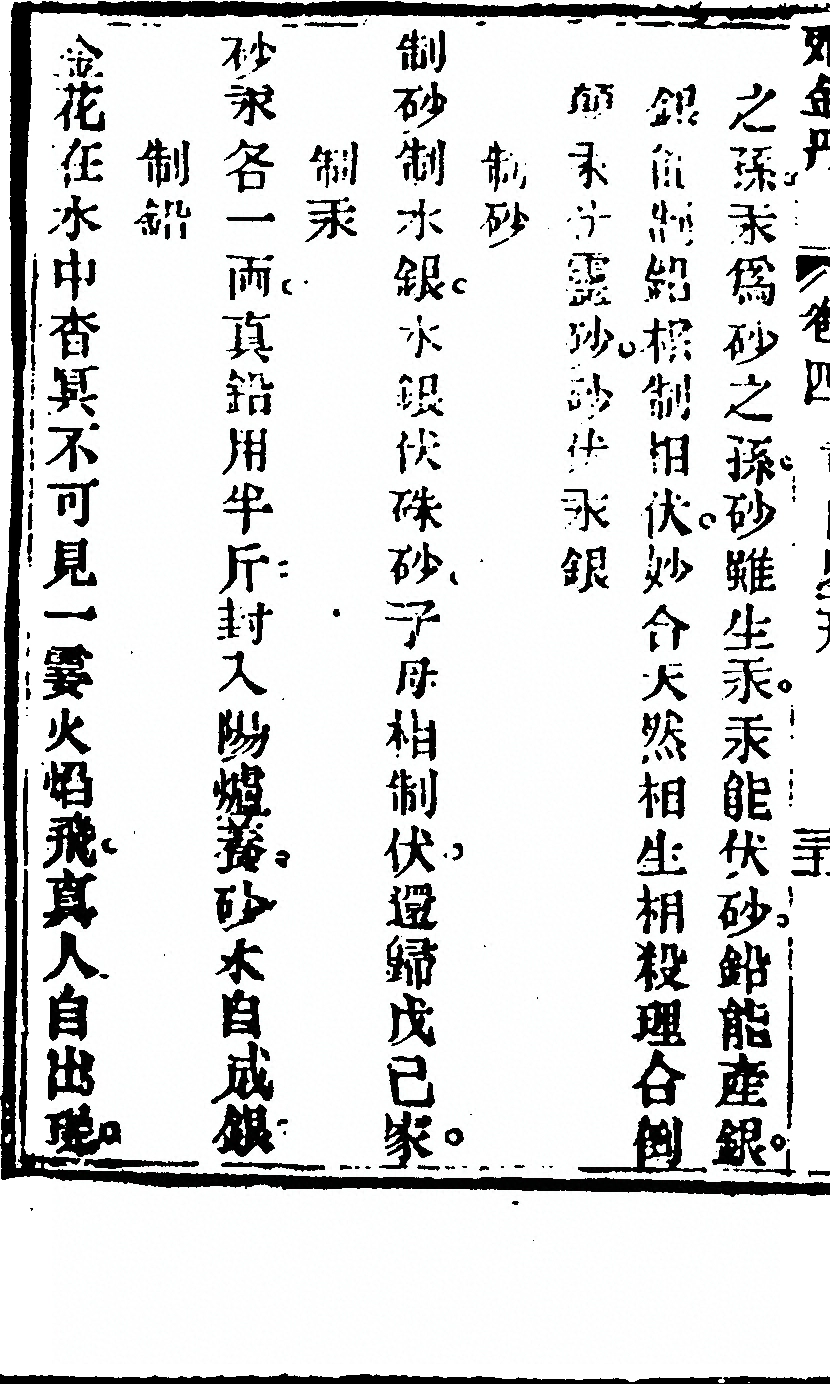 外金丹 卷四 三五
之孫。汞為砂之孫。砂雖生汞。汞能伏砂。鉛能產銀。
銀能制鉛。相制相伏。妙合天然相生相殺理合倒
顛汞分靈砂。砂伏汞銀
制砂
制砂制水銀。水銀伏硃砂。子母相制伏。還歸戊己家。
制汞
砂汞各一兩。真鉛用半斤。封入陽爐養。砂水自成銀。
制鉛
金花在水中杳冥不可見一霎火焰飛。真人自出現。